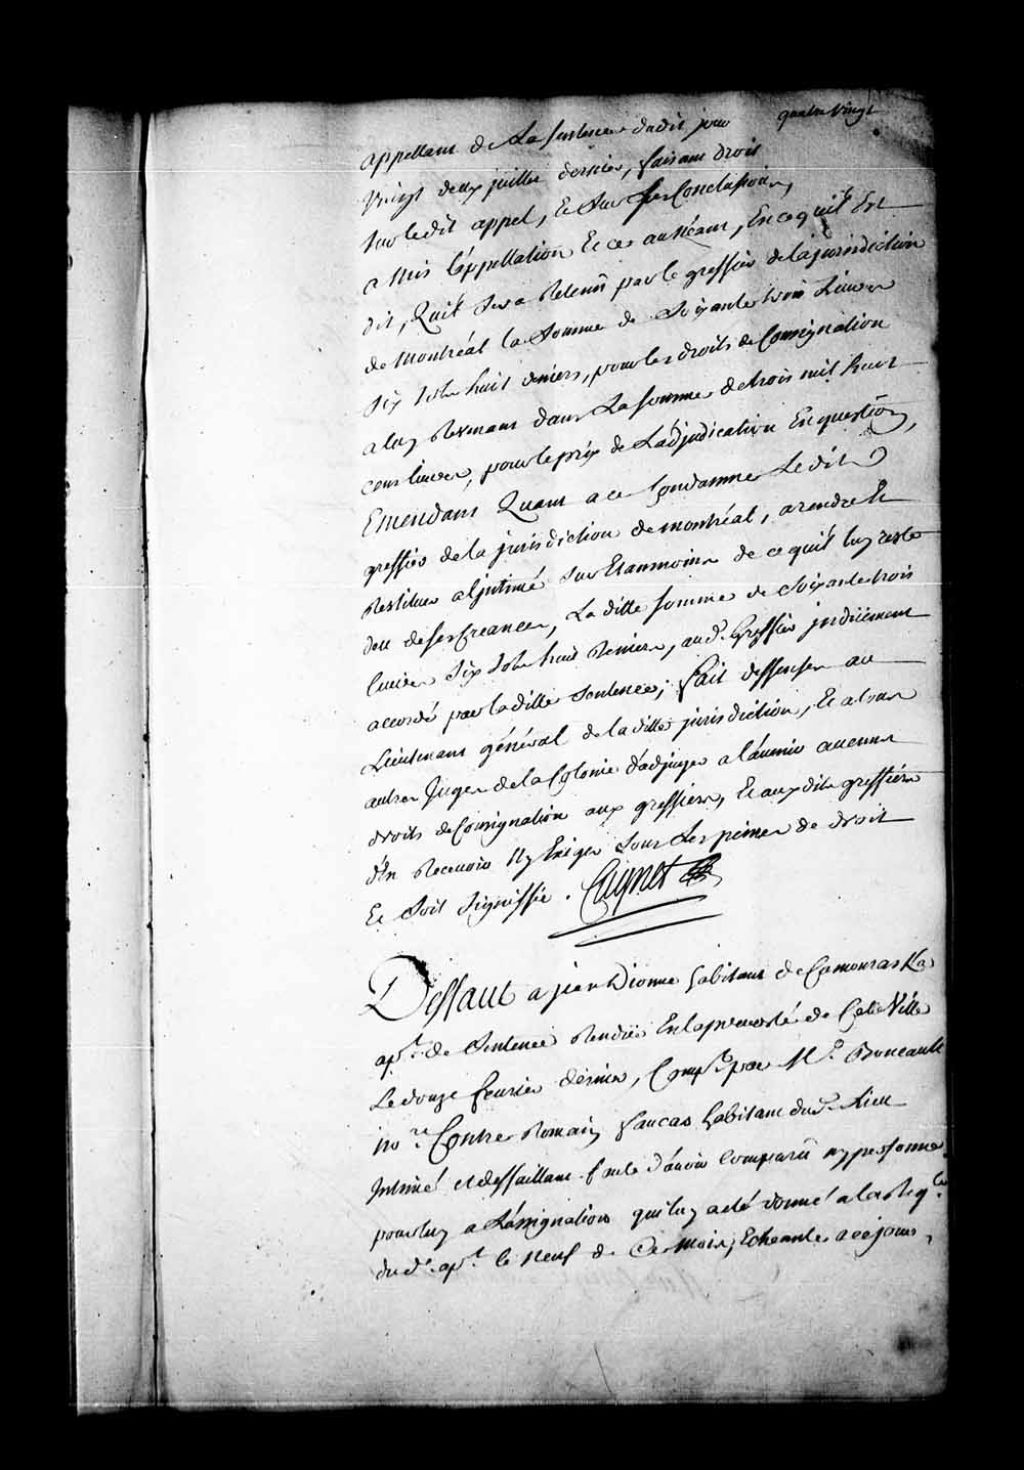 quatre vingt
appellant de La sentence dudit jour
vingt deux juillet dernier, faisant droit
sur ledit appel, Et sur ses Conclusions,
a Mis L'appellation Et ce au Néant, En ce quil Est
dit, Quil sera Retenu par le greffier de la jurisdiction
de Montréal la somme de soixante trois Livres
six sols huit deniers, pour les droits de Consignation
a luy Revenant dans La somme de trois mil huit
cens livres, pour le prix de L'adjudication En question,
Emendant Quant a ce Condamne Ledit
greffier de la jurisdiction de montréal, a rendre Et
Restituer a l'intimé sur Etanmoins de ce quil luy reste
deu de ses Creances, La ditte somme de soixante trois
livres six sols huit deniers, aud. Greffier jndüement
accordé par la ditte sentence; fait deffenses au
Lieutenant général de la ditte jurisdiction, Et a tous
autres Juges de la Colonie d'adjuger a l'avenir aucuns
droits de Consignation aux greffiers, Et aux dits greffiers
d'En Recevoir Ny Exiger sous Les peines de droit
Et soit signiffié. Cugnet
Deffaut a jean Dionne habitant de Camouraska
apt. de sentence Rendüe En la prevosté de Cette Ville
Le douze fevrier dernier, Compt. par Me. Boucault
nore. Contre Romain faucas habitant dud. Lieu
Intimé et deffaillant faute d'avoir Comparu ny personne
pour luy a L'assignation qui luy a été donné a la Reqte.
dud. apt. le Neuf de Ce Mois, Echeante a ce jour,